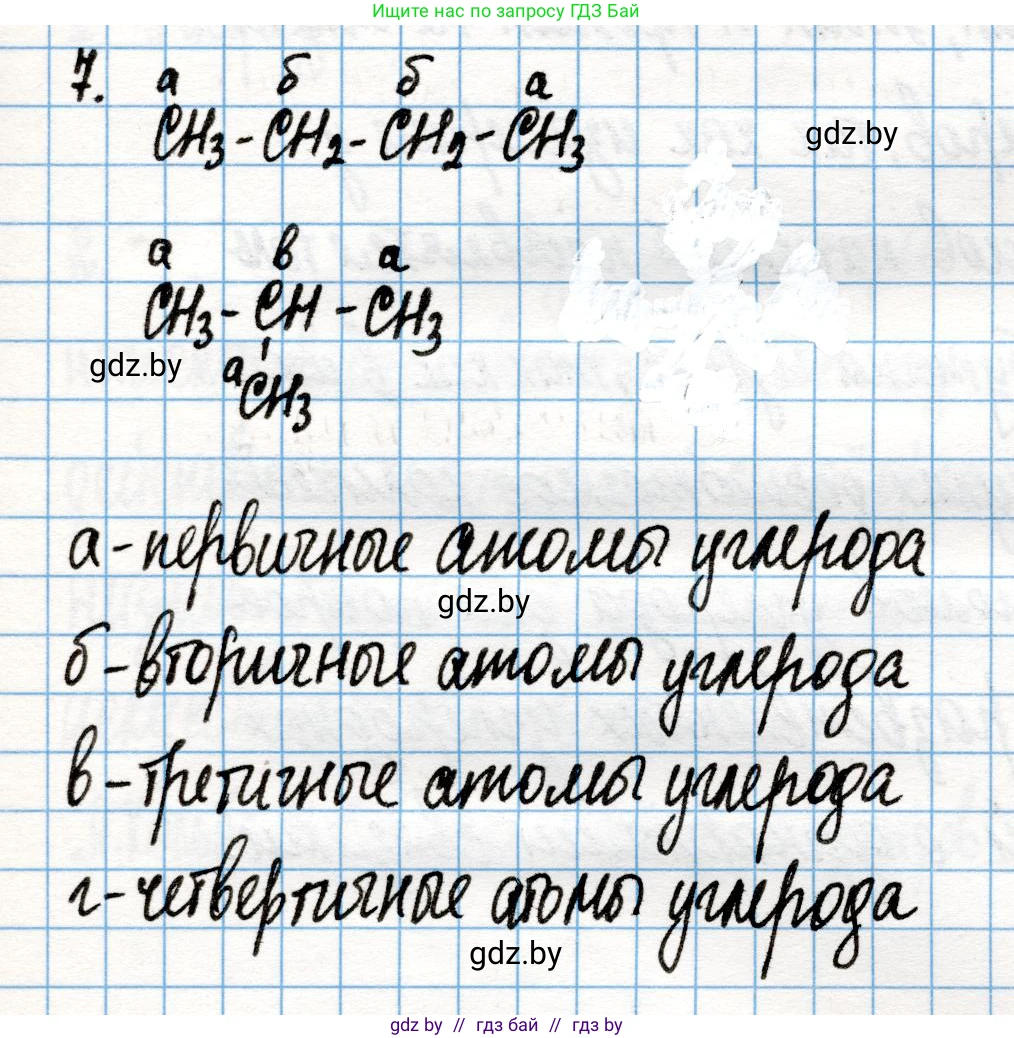 Ищите нас по запросу ГДЗ Бай
7. а б б а
CH3 - CH2 - CH2 - CH3
gdz.by
а в а
CH3 - CH - CH3
gdz.by
а CH3
а - первичные атомы углерода
gdz.by
б - вторичные атомы углерода
в - третичные атомы углерода
г - четвертичные атомы углерода
gdz.by
gdz by // гдз бай // гдз by